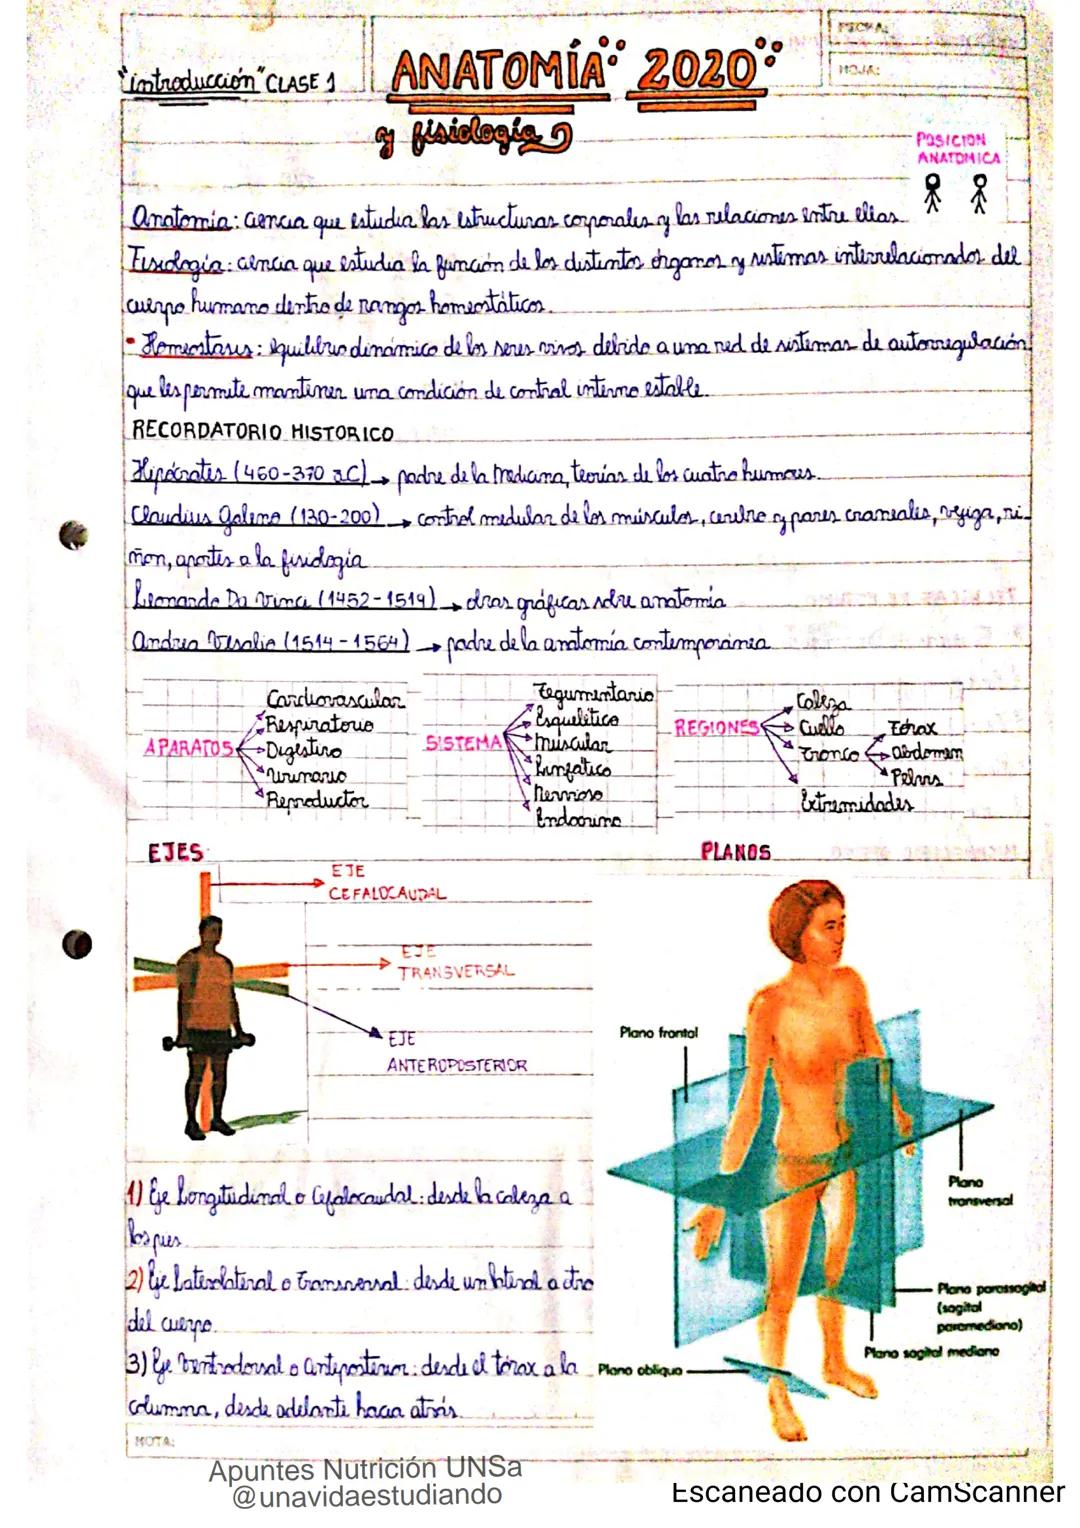 "introducción" CLASE 1
ANATOMÍA 2020
y fisiología
FECHA:
HOJA:
POSICION
ANATOMICA
Anatomía: ciencia que estudia las estructuras corporales y las relaciones entre ellas.
Fisiología: ciencia que estudia la función de los distintos órganos y sistemas interrelacionados del
cuerpo humano dentro de rangos homeostáticos.
• Homeostasis: equilibrio dinámico de los seres vivos debido a una red de sistemas de autorregulación
que les permite mantener una condición de control interno estable.
RECORDATORIO HISTORICO
Hipócrates (460-370 a.C) → padre de la Medicina, teorías de los cuatro humores.
Claudius Galeno (130-200) → control medular de los músculos, cerebro y pares craneales, vejiga, ri-
ñon, aportes a la fisiología
Leonardo Da Vinci (1452-1519) → obras gráficas sobre anatomía
Andrea Vesalio (1514-1564) → padre de la anatomía contemporánea
APARATOS
Cardiovascular
Respiratorio
Digestivo
Urinario
Reproductor
SISTEMA
Tegumentario
Esquelético
Muscular
Linfatico
Nervioso
Endocrino
REGIONES
Cabeza
Cuello
Tronco
Tórax
Abdomen
Pelvis
Extremidades
EJES
EJE
CEFALOCAUDAL
EJE
TRANSVERSAL
EJE
ANTEROPOSTERIOR
PLANOS
Plano frontal
Plano
transversal
Plano parasagital
(sagital
paramediano)
Plano sagital mediano
Plano oblicuo
1) Eje Longitudinal o Cefalocaudal: desde la cabeza a
los pies
2) Eje Laterolateral o Transversal: desde un lateral a otro
del cuerpo.
3) Eje Ventrodorsal o Anteposterior: desde el tórax a la
columna, desde adelante hacia atrás.
NOTA:
Apuntes Nutrición UNSa
@unavidaestudiando
Escaneado con CamScanner